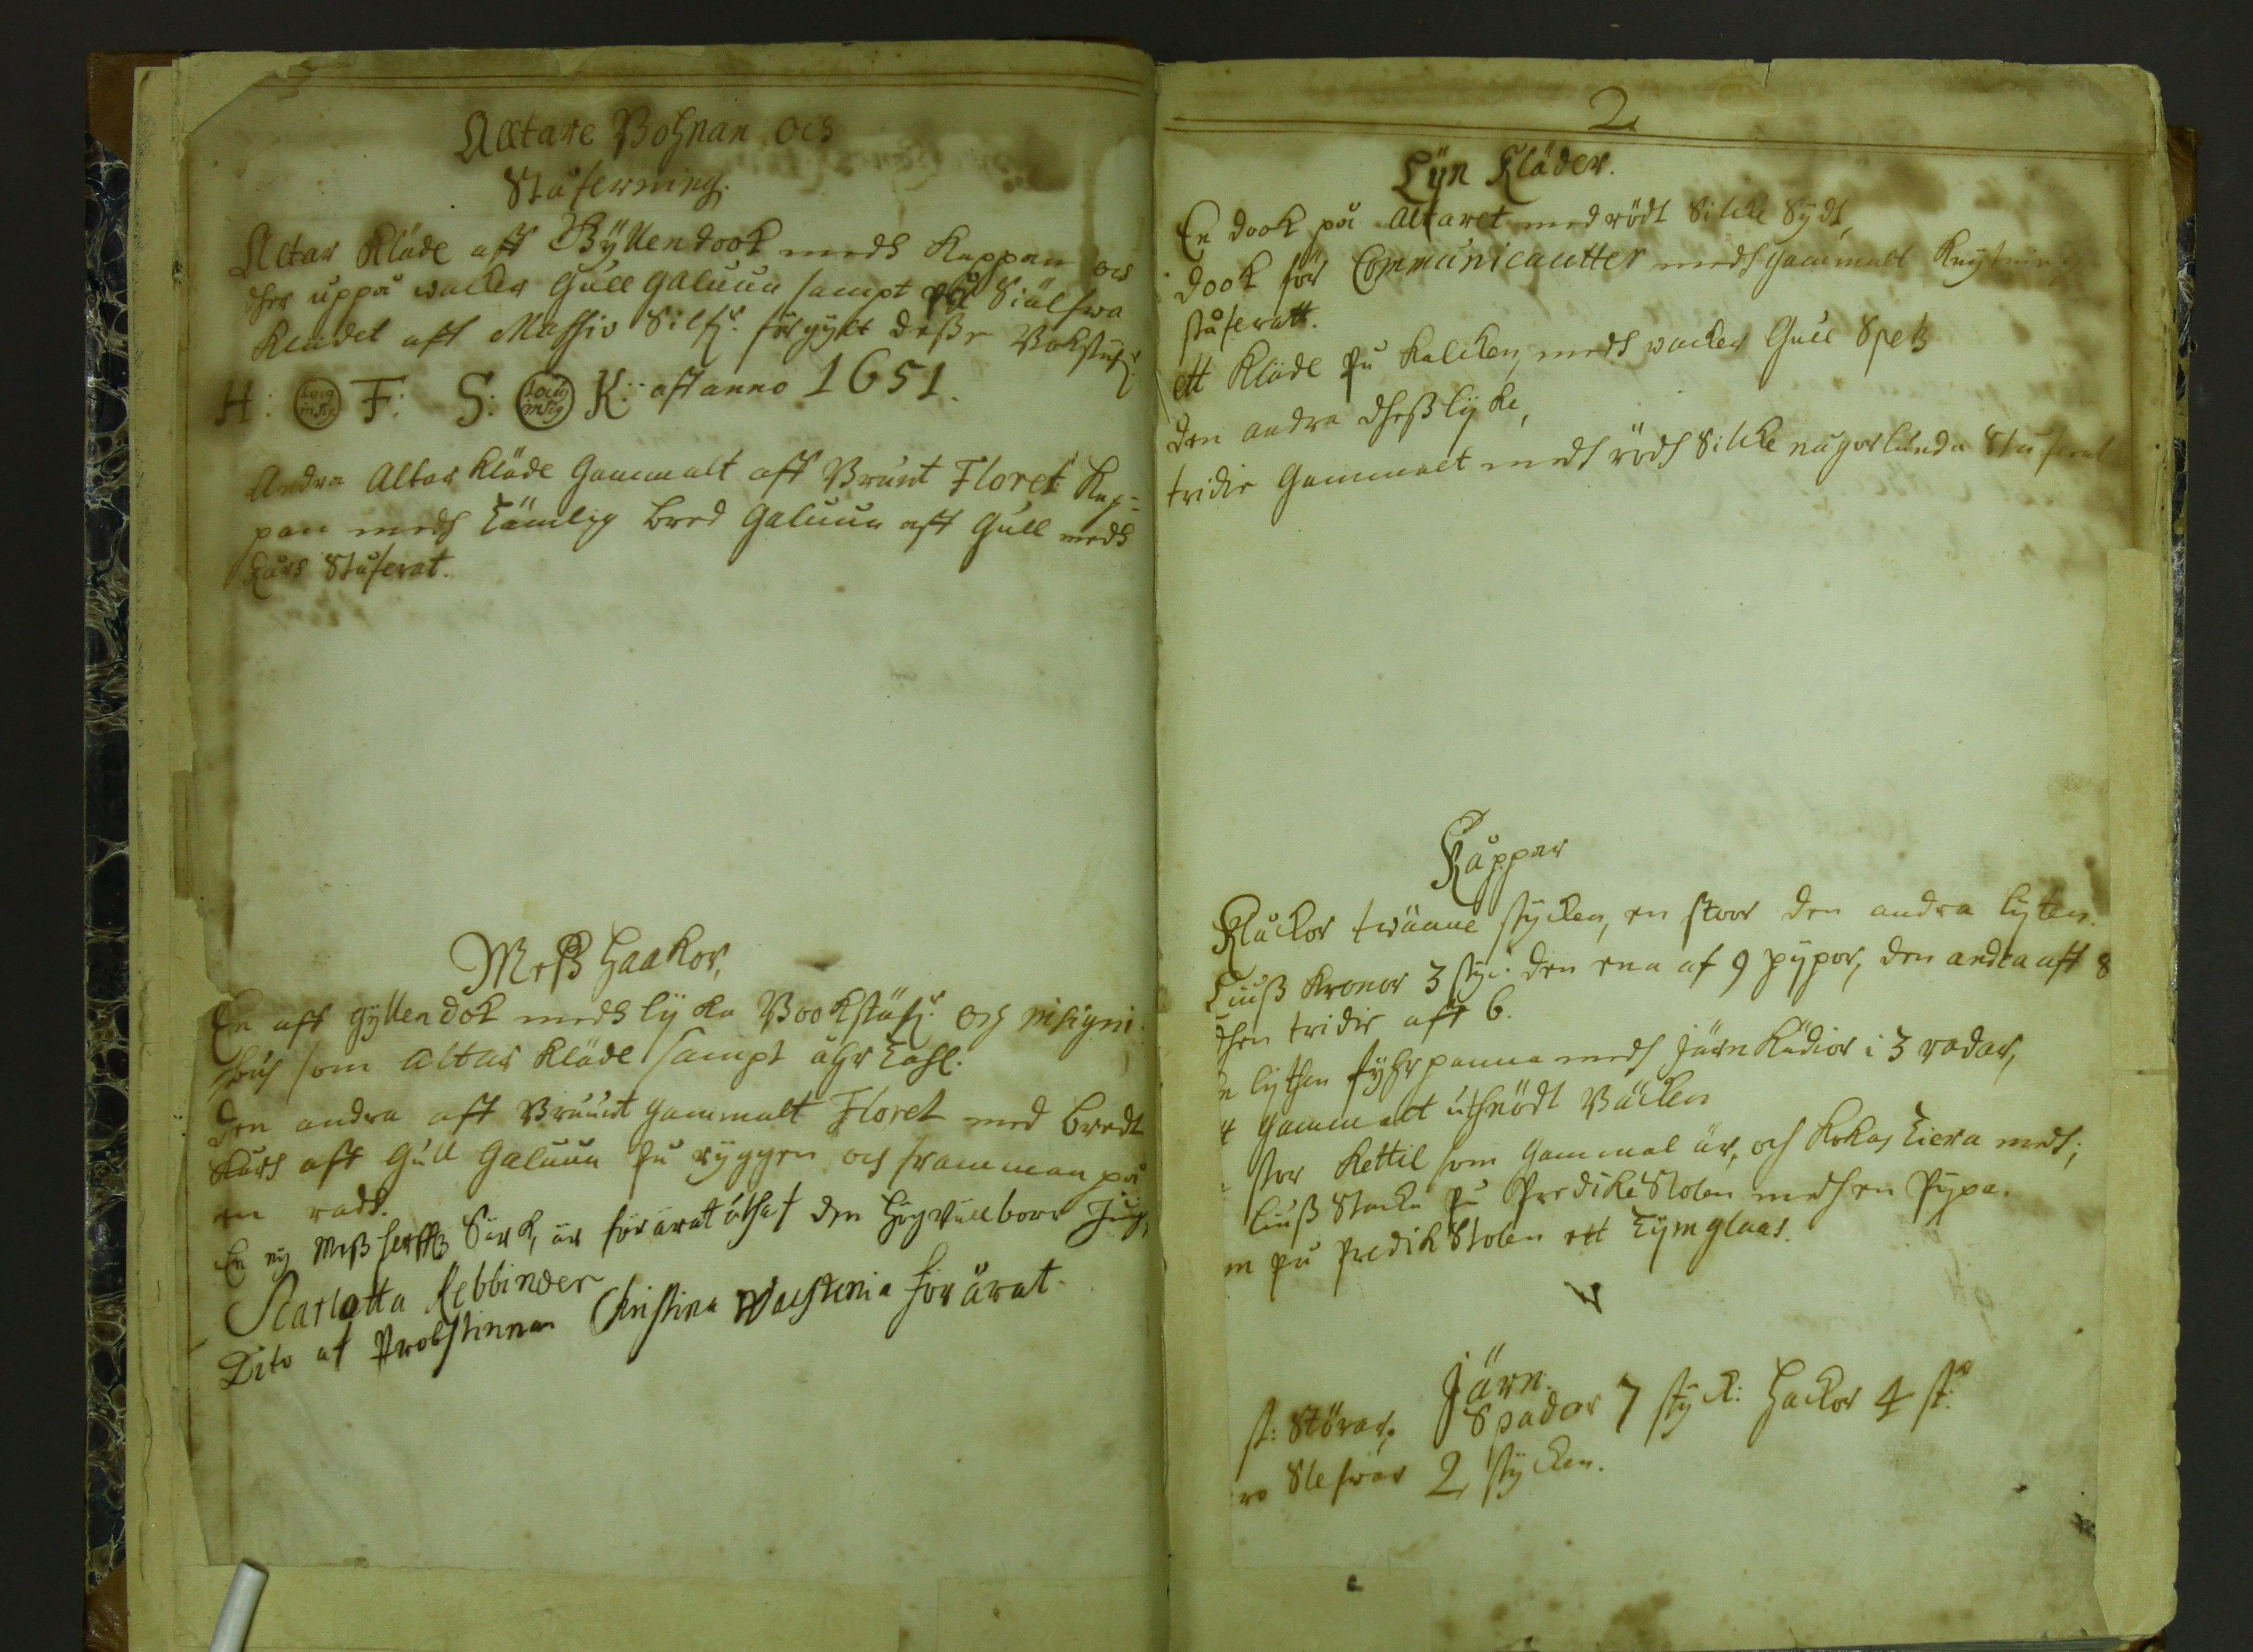 Alltare Bohnan och
Stuferning.
Altar Kläde aff Gyllendook medh Kappan och
dher uppå wacker Gull galuun sampt på Siälfwa
Klädet aff Massiv Silfr. förgylt desse Bokstäfr
H: Locus insig F: S: Locus insig K: aff anno 1651.
Andra Altar Kläde Gammalt aff Brunt Floret Kap-
pan medh Tämlig bred Galuun aff Gull medh
Kårs Stuferat.
Mess Haakor,
En aff gyllendok medh lyka Bookstäfr. och insigni
som Altar Kläde sampt åhrtahl.
Den andra aff Bruunt gammalt Floret med bredt
Kårs aff Gull Galuun på ryggen och framman på
en radh.
En ny Mess Särk, är förärat uthaf den Högwälborne Jung,
Scarlotta Rebbinder
Dito af Probstinnan Christina Wacstenia förärat.
2
Lÿn Kläder.
En dook på Altaret med rödt Silke Sydt,
dook för Communicautter medh gammalt Knytning
stuferatt.
ett Kläde på Kalcken, medh wacker Gull Spetz
den andra dhesslyke,
tridie Gammalt medh rödh Silke någorlunda Stuferat
Kåppar
Klåckor twänne stycken, en stoor den andra lyten.
Liuss Kronor 3 sty: den ena af 9 pypor, den andra aff 8
dhen tridie aff 6.
lythen fyhrpanna medh Järn Kädior i 3 radar,
Gammalt uthnödt Bäcken
stor Kettil som Gammal är, och Kokas Tiera medh;
liuss Stacka på PredikeStolen medh en Pypa.
på PredikStolen ett Tymglaas.
Järn.
st: Störar, Spador 7 styck: Hackor 4 st:
Slefwar 2 stycken.